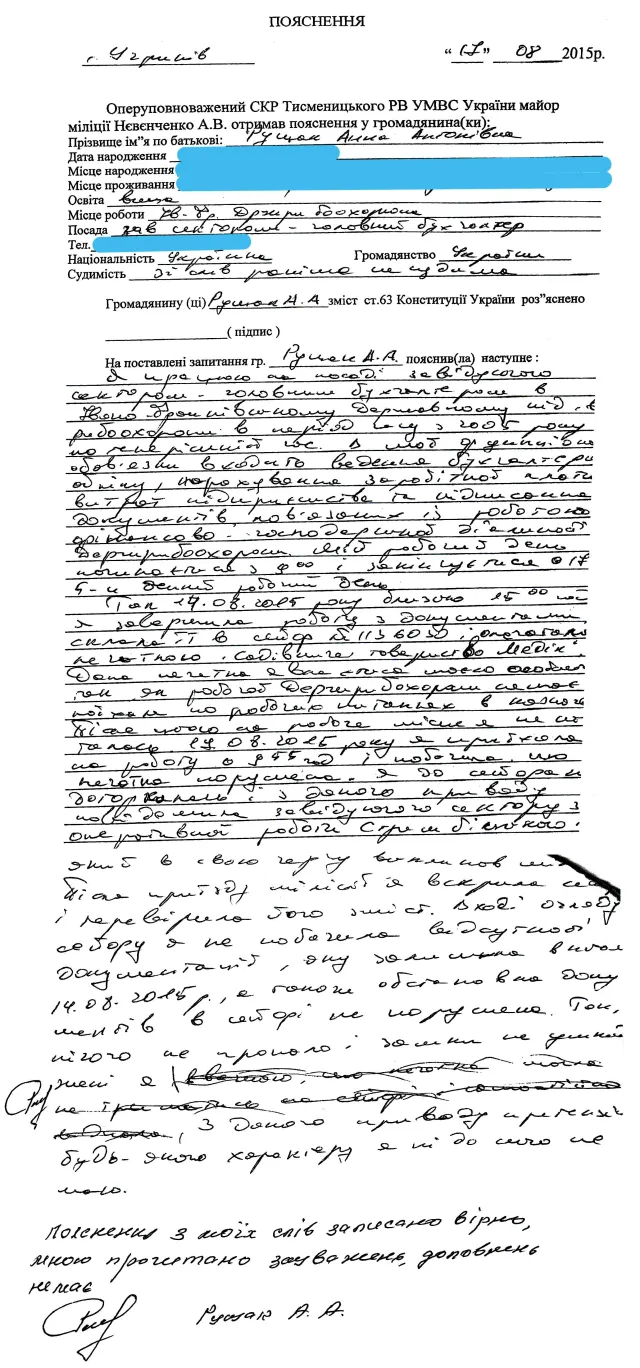 ПОЯСНЕННЯ
с. Угринів "17" 08 2015р.
Оперуповноважений СКР Тисменицького РВ УМВС України майор
міліції Нєвєнченко А.В. отримав пояснення у громадянина(ки):
Прізвище ім"я по батькові: Рущак Анна Антонівна
Дата народження
Місце народження
Місце проживання
Освіта вища
Місце роботи Ів-Фр. Держрибоохорона
Посада зав сектором - головний бухгалтер
Тел.
Національність Українка Громадянство України
Судимість зі слів раніше не судима
Громадянину (ці) Рущак А.А зміст ст.63 Конституції України роз"яснено
( підпис )
На поставлені запитання гр. Рущак А.А. пояснив(ла) наступне :
Я працюю на посаді завідуючого
сектором - головним бухгалтером в
Івано-Франківському Державному
рибоохорони в період часу з 2005 року
по теперішній час. В мої функціональні
обов'язки входить ведення бухгалтерії
обліку, нарахування заробітної плати
витрат підприємства та підписання
документів пов'язаних із роботою
фінансово - господарчої діяльності
Держрибоохорони. Мій робочий день
починається з 8 00 і закінчується о 17
5-и денний робочий день.
Так 14.08.2015 року близько 15 00 год
я завершила роботу з документами
склала її в сейф № 1136030 і опечатала
печаткою "Садівниче товариство Медік".
Дана печатка являється моєю особист
так як роботою Держрибоохорони немає
поїхала по робочих питаннях в казнач
Після чого на робоче місце я не
талась. 17.08.2015 року я приїхала
на роботу о год і побачила що
печатка порушена. Я до сейфа не
доторкалась і з даного приводу
повідомила завідуючого сектору з
оперативної роботи
який в свою чергу викликав
Після приїзду міліції я вскрила се
і перевірила його зміст. В ході огляду
сейфу я не побачила відсутності
документації, яку залишила
14.08.2015 р., а також обстановка доку
ментів в сейфі не порушена. Так,
нічого не пропало і замки не
жені я
З даного приводу претензій
будь-якого характеру я ні до кого не
маю.
Пояснення з моїх слів записано вірно,
мною прочитано зауважень, доповнень
немає
Рущак А. А.